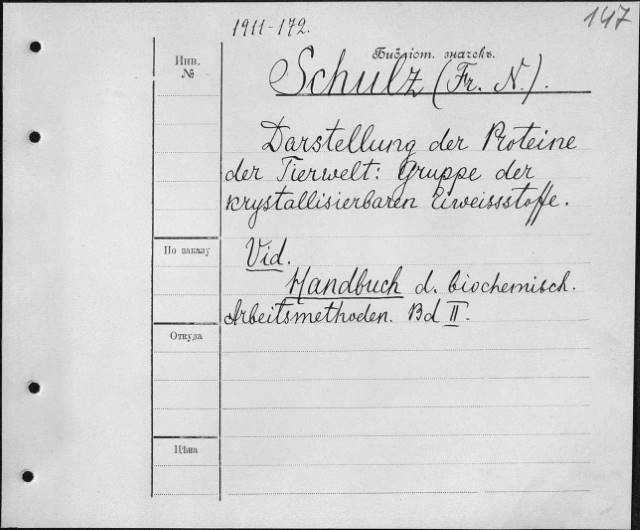 147
1911-172.
Инв.
№
Библіот. значекъ.
Schulz (Fr. N.).
Darstellung der Proteine
der Tierwelt: Gruppe der
krystallisierbaren Eiweissstoffe.
По заказу
Vid.
Handbuch d. biochemisch.
Arbeitsmethoden. Bd II.
Откуда
Цѣна